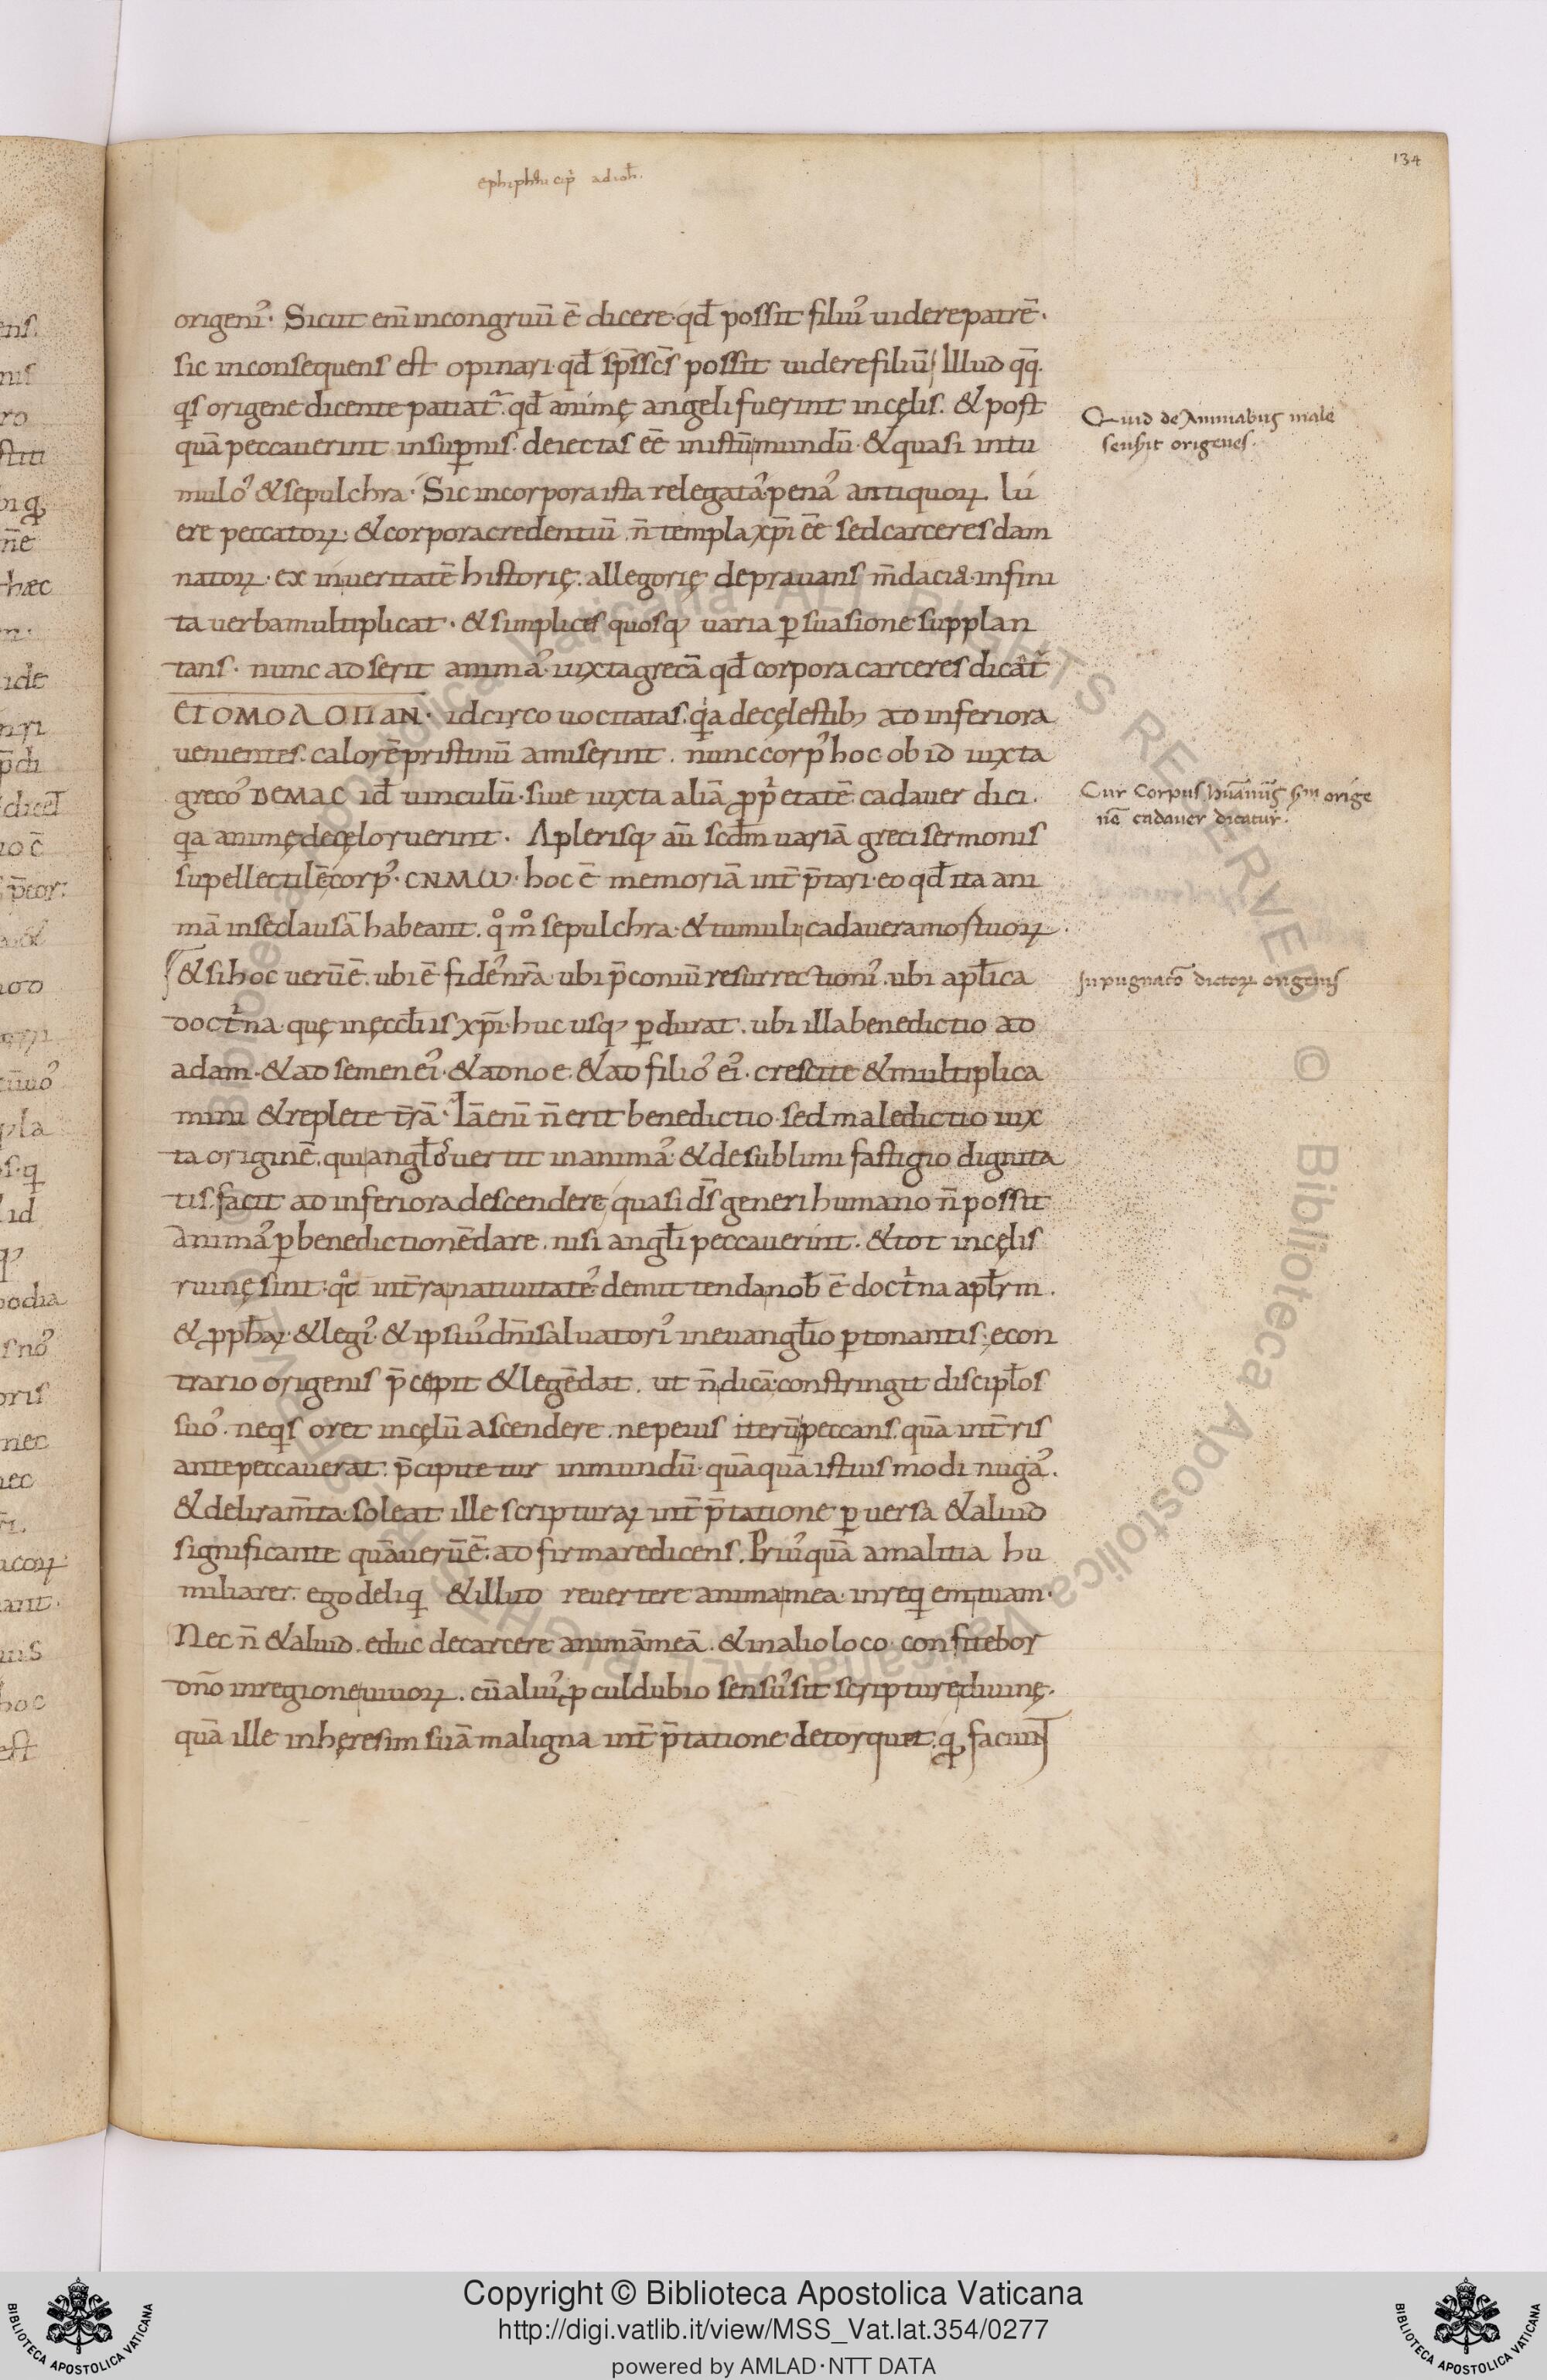 134
origeni᾽. Sicut eni̅ incongruu̅ e̅ dicere qđ possit filiu᾽ uidere patre̅.
sic inconsequens est opinari qđ sp̅s sc̅s possit uidere filiu̅ Illud qq̅.
qs origene dicente patiat᾽ qđ animę angeli fuerint in cęlis. & post
qua̅ peccauerint in sup̱nis. deiectas ee̅ in istu̅ mundu̅. & quasi in tu
mulo᾽ & sepulchra. Sic in corpora ista relegata᾽ pena᾽ antiquoꝝ lu
ere peccatoꝝ. & corpora credentiu̅ n̅ templa xp̅i ee̅ sed carceres dam
natoꝝ. ex in ueritate̅ historię. allegorię deprauans m̅dacia. infini
ta uerba multiplicat. & simplices quosq; uaria ꝑsuasione supplan
tans. nunc adserit anima᾽ iuxta greca̅ qđ corpora carceres dicat᾽
ETOMOΛOΠAN. idcirco uocitatas. qa de cęlestib; ad inferiora
uenientes. calore̅ pristinu̅ amiserint. nunc corp᾽ hoc ob id iuxta
greco᾽ DEMAC iđ uinculu̅. siue iuxta alia̅ ꝓp̱etate̅ cadauer dici.
qa animę de cęlo ruerint. A plerisq; au̅ scđm uaria̅ greci sermonis
supellectile̅ corp᾽. CNMω. hoc e̅ memoria̅ int̅p̅tari. eo qđ ita ani
ma̅ in se clausa̅ habeant. qo̊ mo̊ sepulchra. & tumuli cadauera mortuoꝝ.
& si hoc ueru̅ e̅. ubi e̅ fide᾽ nr̅a ubi p̅coniu̅ resurrectioni᾽. ubi apl̅ica
doct᾽na. quę in ęccl̅iis xp̅i. huc usq; ꝑdurat. ubi illa benedictio ad
adam. & ad semen ei᾽. & ad noe. & ad filio᾽ ei᾽. crescite & multiplica
mini & replete tr̅a̅. Ia̅ eni̅ n̅ erit benedictio. sed maledictio iux
ta origine̅. qui angl̅o᾽ uertit in anima᾽. & de sublimi fastigio dignita
tis. facit ad inferiora descendere quasi d̅s generi humano n̅ possit
anima᾽ ꝑ benedictione̅ dare. nisi angl̅i peccauerint. & tot in cęlis
ruinę sint. qo̊t int̅ra natiuitate᾽. demittenda nob̅ e̅ doct᾽na apl̅rm.
& ꝓph̅aꝝ. & legi᾽. & ipsiu᾽ dn̅i saluatori᾽ in euangl̅io ꝑtonantis. econ
trario origenis p̅cepit & lege̅ dat. ut n̅ dica̅ constringit discipl̅os
suo᾽. neqs oret in cęlu̅ ascendere. ne peius iteru̅ peccans. qua̅ in t̅ris
ante peccauerat. p̅cipitetur in mundu̅. qua̅qua̅ istiusmodi nuga᾽.
& deliram̅ta. soleat ille scripturaꝝ int̅p̅tatione ꝑuersa & aliud
significante qua̅ ueru̅ e̅. adfirmare dicens. Priu᾽qua̅ a malitia hu
miliarer. ego deliq & illud reuertere anima mea. in requem tuam.
Nec n̅ & aliud. educ de carcere anima̅ mea̅. & in alio loco. confitebor
dn̅o in regione uiuoꝝ. cu̅ aliu᾽ ꝓculdubio sensu᾽ sit scripture diuinę.
qua̅ ille in heresim sua̅ maligna int̅p̅tatione detorquet. q faciunt
Quid de Animabus male
sensit origenes.
Cur Corpus hua̅nu̅s sm orige
ne̅ cadauer dicatur.
Inpugnaco̅ dictoꝝ origenis
Copyright © Biblioteca Apostolica Vaticana
http://digi.vatlib.it/view/MSS_Vat.lat.354/0277
powered by AMLAD·NTT DATA
BIBLIOTECA APOSTOLICA VATICANA
BIBLIOTECA APOSTOLICA VATICANA